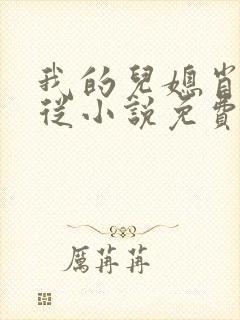 我的兒媳
從小說免費
厲苒苒